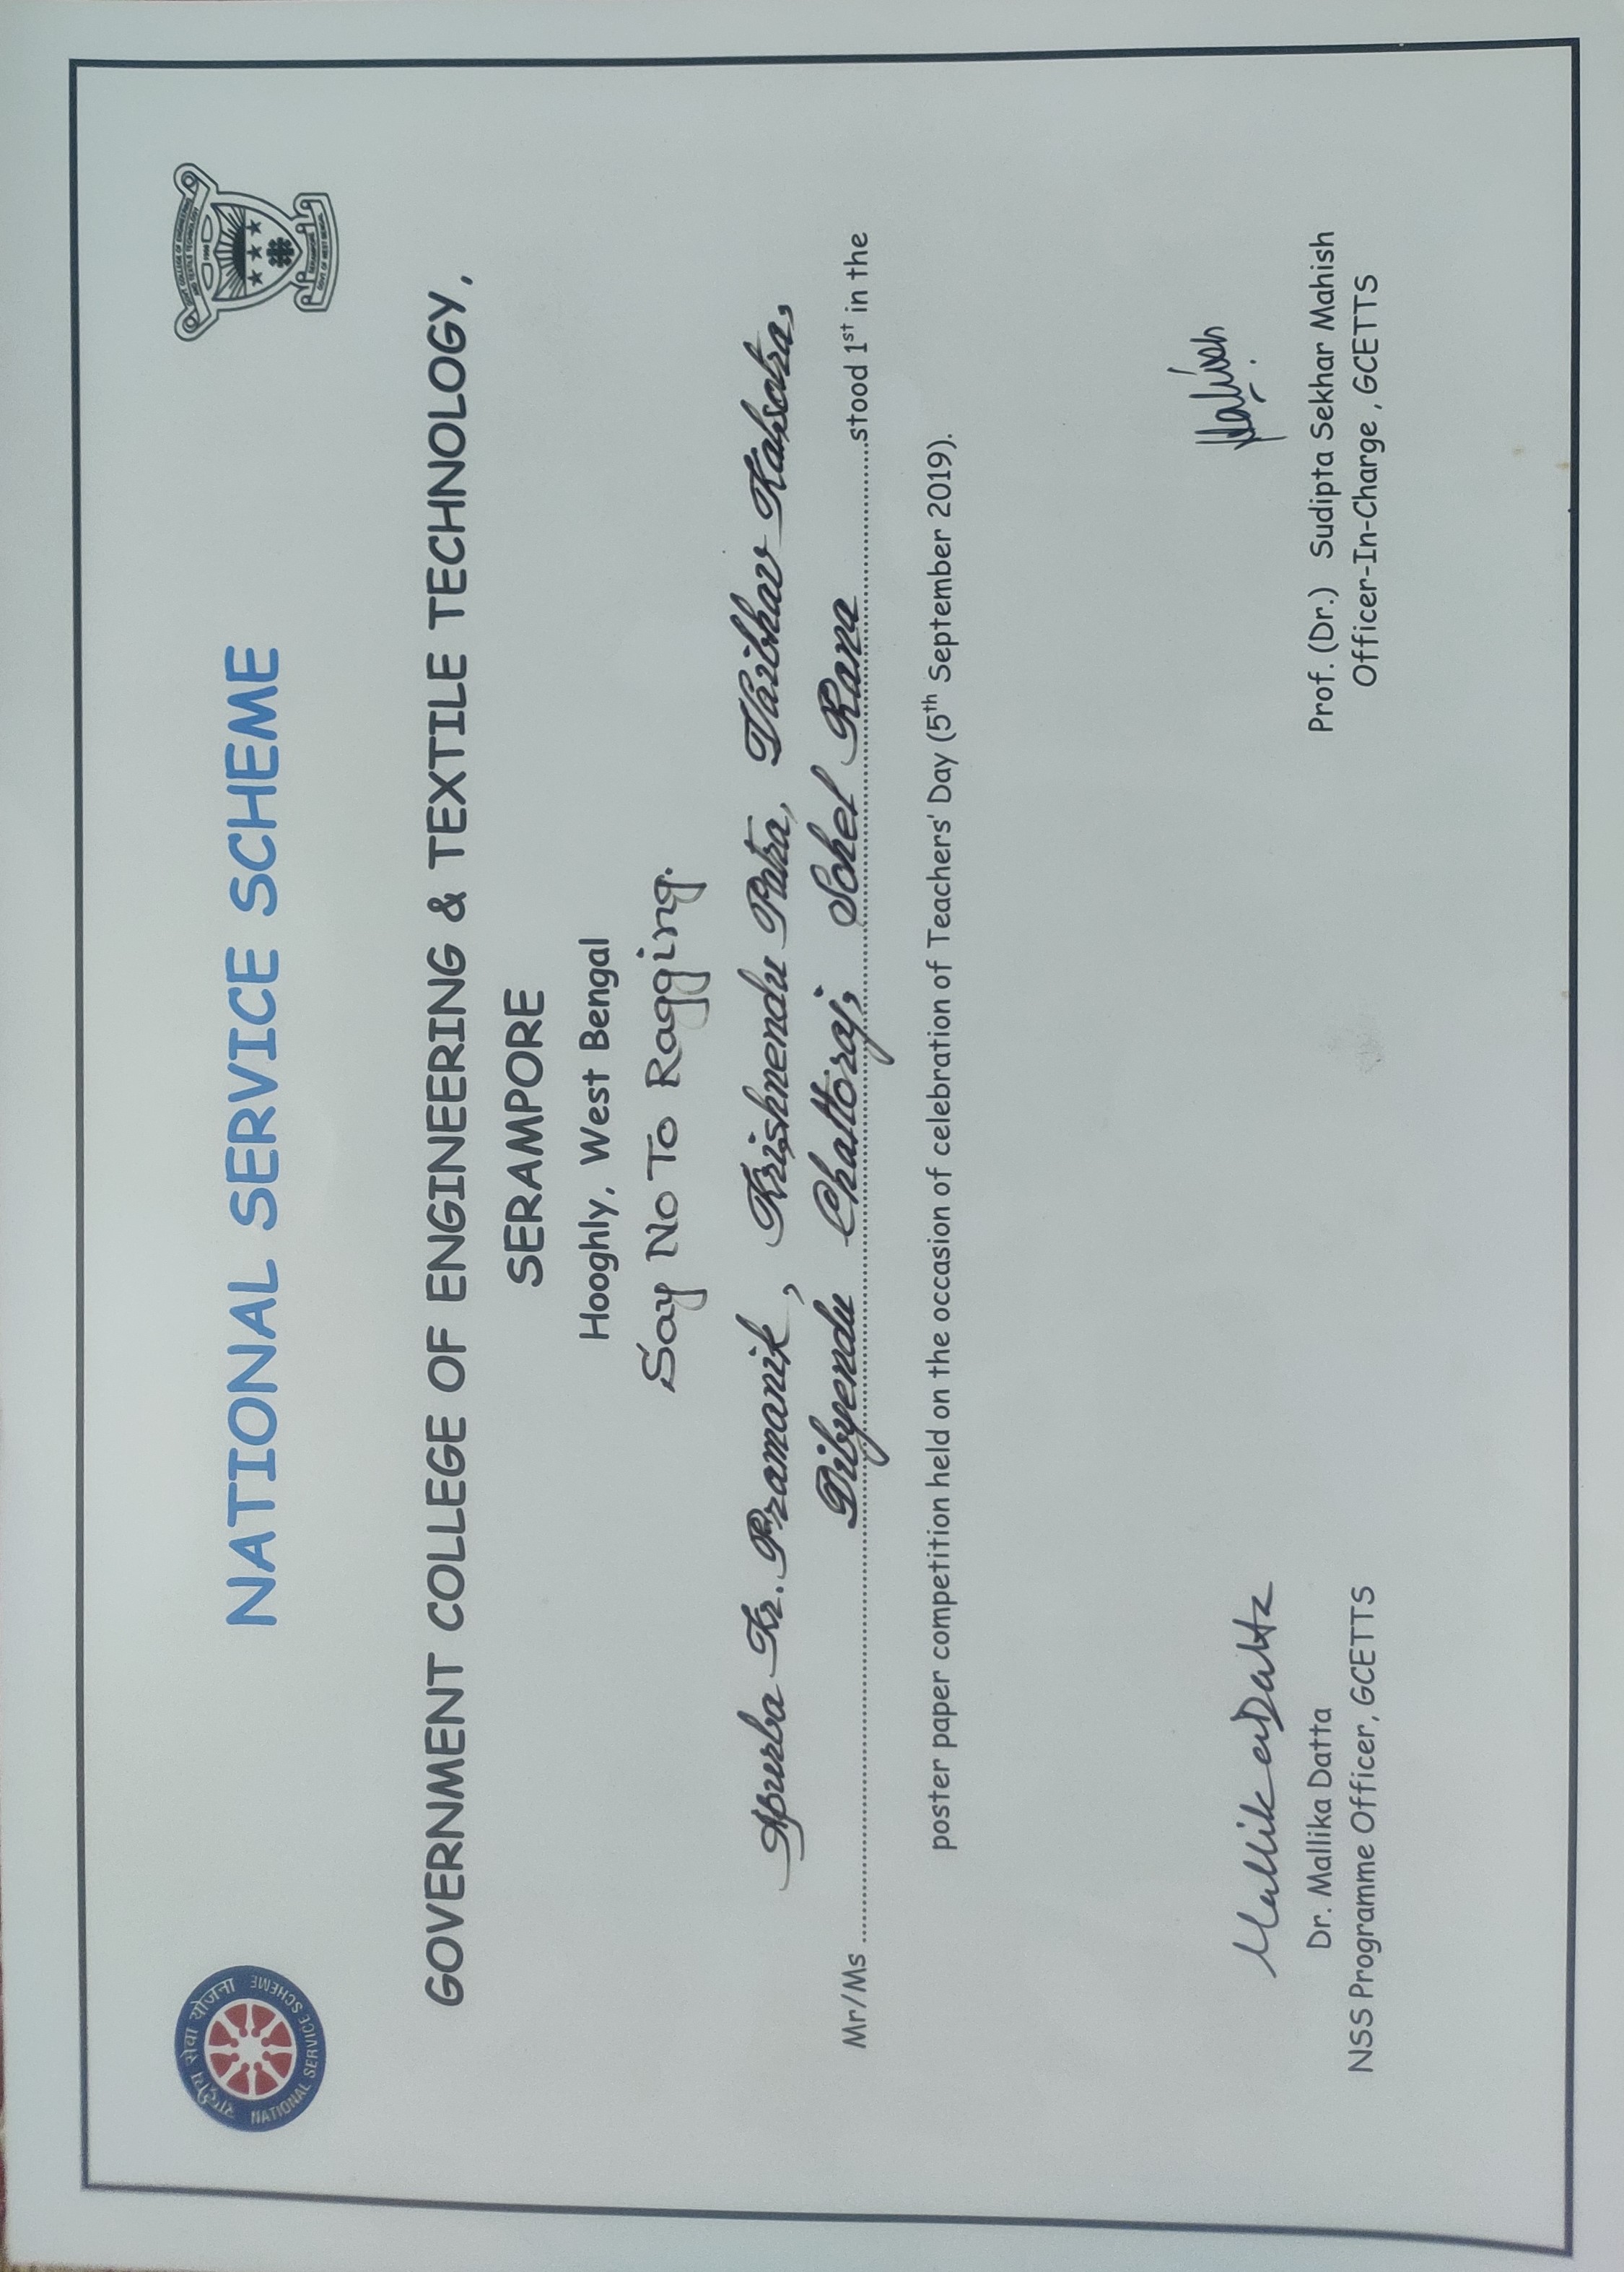 राष्ट्रीय सेवा योजना
NATIONAL SERVICE SCHEME
NATIONAL SERVICE SCHEME
GOVT. COLLEGE OF ENGINEERING
AND TEXTILE TECHNOLOGY
SERAMPORE
GOVT OF WEST BENGAL
GOVERNMENT COLLEGE OF ENGINEERING & TEXTILE TECHNOLOGY,
SERAMPORE
Hooghly, West Bengal
Say No To Ragging.
Apurba Kr. Pramanik, Krishnendu Patra, Vaibhav Kalsotra,
Mr/Ms Dibyendu Chattoraj, Sohel Rana stood 1st in the
poster paper competition held on the occasion of celebration of Teachers' Day (5th September 2019).
Mallika Datta
Mahish
Dr. Mallika Datta
NSS Programme Officer, GCETTS
Prof. (Dr.) Sudipta Sekhar Mahish
Officer-In-Charge , GCETTS